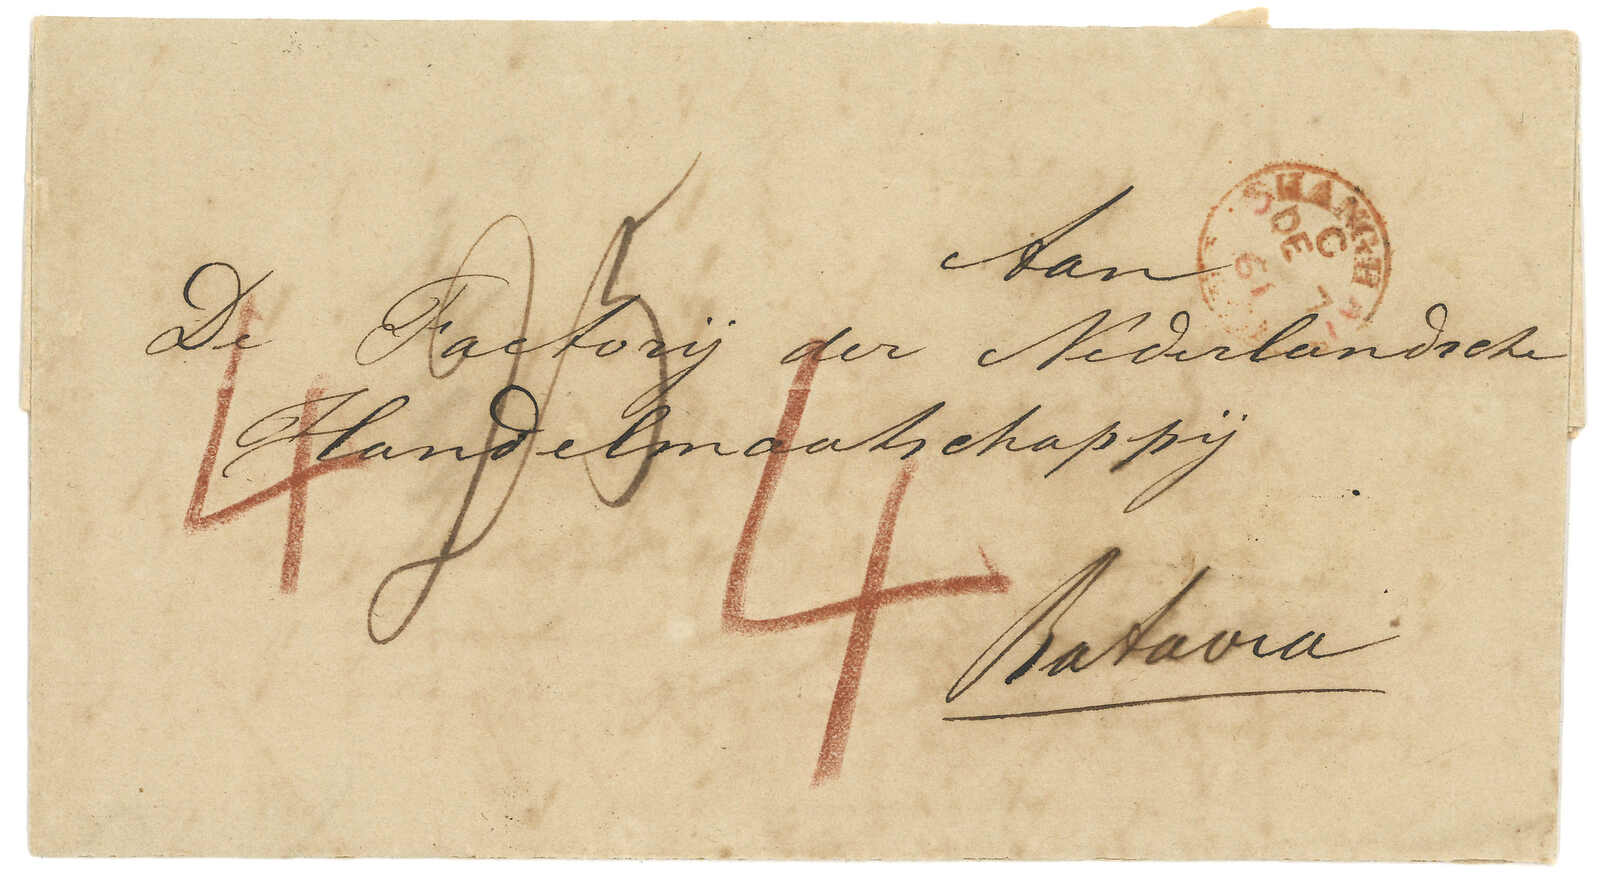 Aan
De Factorij der Nederlandsche
Handelmaatschappij
Batavia
4
4
SHANGHAI
C
DE 7
61